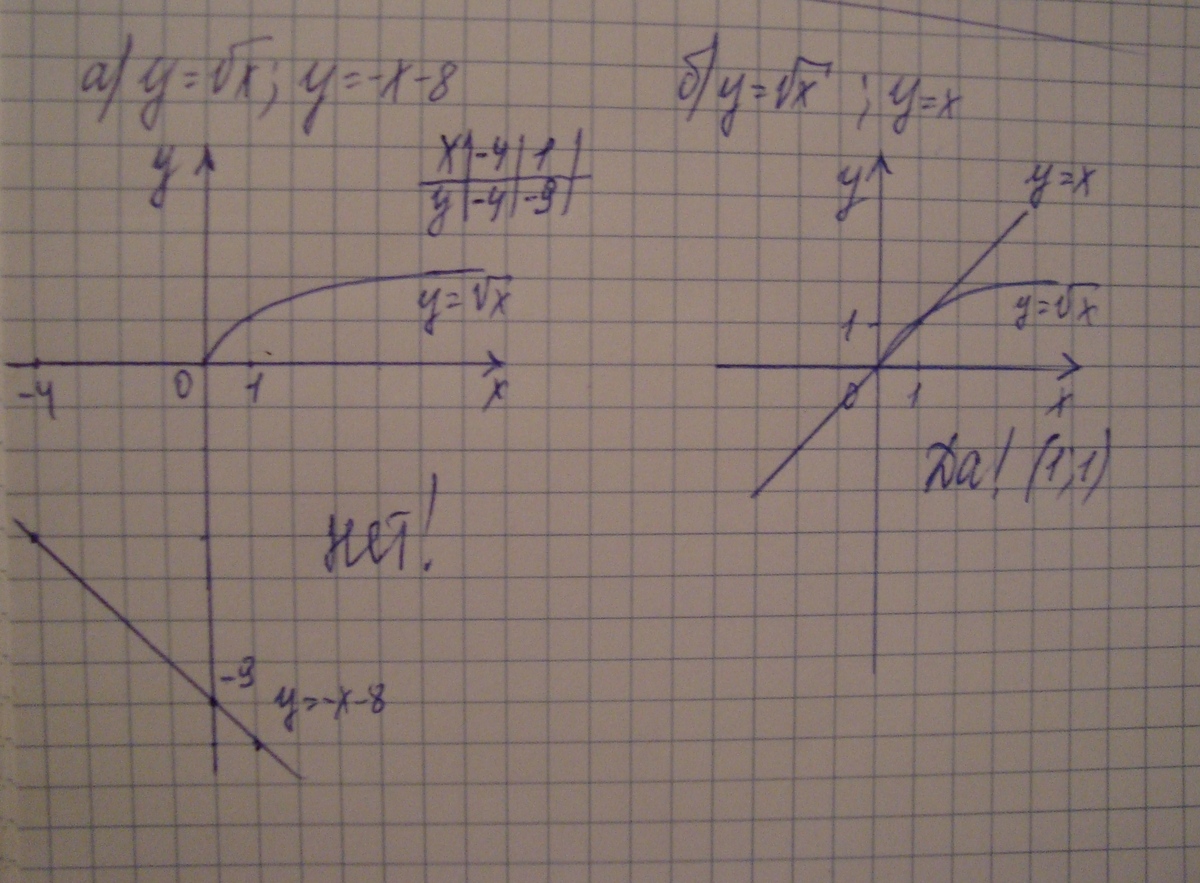 а) y=√x; y=-x-8
y
x | -4 | 1
y | -4 | -9
y=√x
-4 0 1 x
Нет!
-9
y=-x-8
б) y=√x ; y=x
y
y=x
1
y=√x
0 1 x
Да! (1;1)